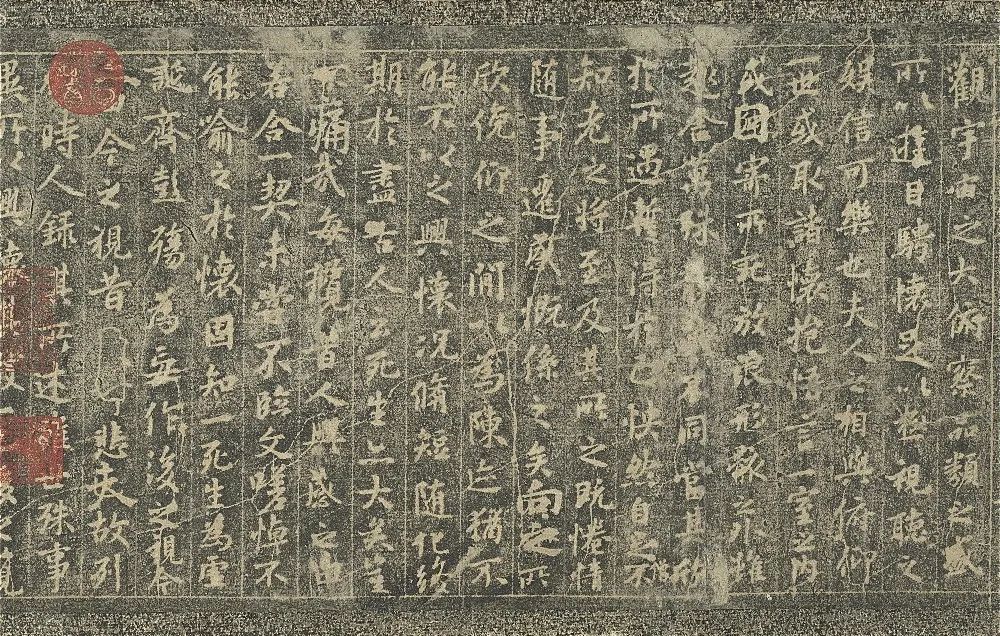 觀宇宙之大俯察品類之盛
所以遊目騁懷足以極視聽之
娛信可樂也夫人之相與俯仰
一世或取諸懷抱悟言一室之內
或因寄所託放浪形骸之外雖
趣舍萬殊靜躁不同當其欣
於所遇暫得於己快然自足不
知老之將至及其所之既惓情
随事遷感慨係之矣向之所
欣俛仰之閒以為陳迹猶不
能不以之興懷況脩短随化終
期於盡古人云死生亦大矣豈
不痛哉每攬昔人興感之由
若合一契未嘗不臨文嗟悼不
能喻之於懷固知一死生為虛
誕齊彭殤為妄作後之視今
今之視昔悲夫故列
時人錄其所述雖世殊事
異所以興懷其致一之覽